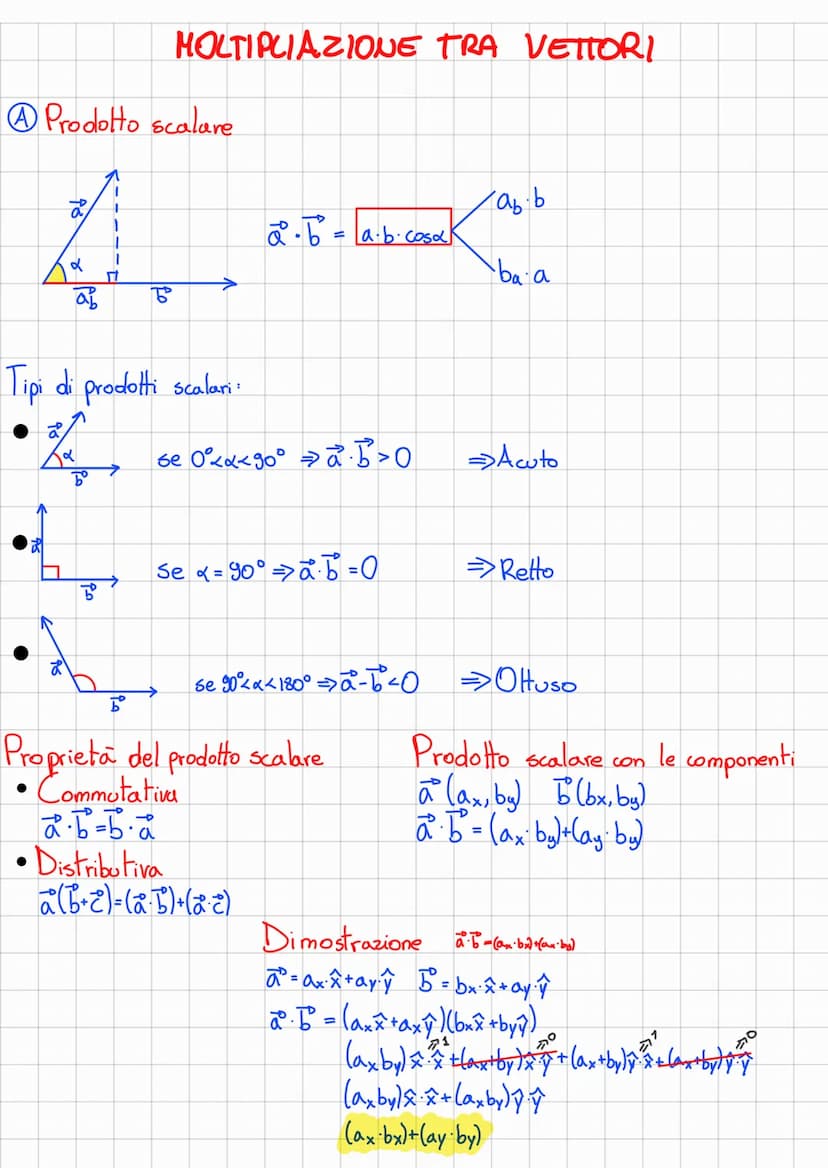 MOLTIPLIAZIONE TRA VETTORI
A Prodotto scalare
a⃗
α
a⃗b b⃗
a⃗ · b⃗ = a·b·cosα
ab·b
ba·a
Tipi di prodotti scalari:
a⃗ α b⃗
se 0°<α<90° ⇒ a⃗·b⃗>0 ⇒Acuto
a⃗ b⃗
se α=90° ⇒ a⃗·b⃗=0 ⇒Retto
a⃗ b⃗
se 90°<α<180° ⇒ a⃗-b⃗<0 ⇒Ottuso
Proprietà del prodotto scalare
• Commutativa
a⃗·b⃗=b⃗·a⃗
• Distributiva
a⃗(b⃗+c⃗)=(a⃗·b⃗)+(a⃗·c⃗)
Prodotto scalare con le componenti
a⃗(ax,by) b⃗(bx,by)
a⃗·b⃗=(ax·by)+(ay·by)
Dimostrazione a⃗·b⃗=(ax·bx)+(ax·by)
a⃗=ax·x̂+ay·ŷ b⃗=bx·x̂+ay·ŷ
a⃗·b⃗=(axx̂+axŷ)(bxx̂+byŷ)
(axby)x̂·x̂⇒1+(ax+by)x̂·ŷ⇒0+(ax+by)ŷ·x̂⇒1+(ax+by)ŷ·ŷ⇒0
(axby)x̂·x̂+(axby)ŷ·ŷ
(ax·bx)+(ay·by)